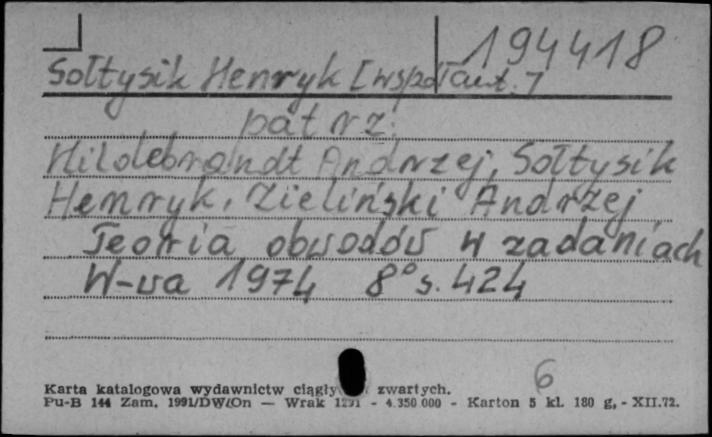 194418
Sołtysik Henryk [współaut.]
patrz:
Hildebrandt Andrzej, Sołtysik
Henryk, Zieliński Andrzej
Teoria obwodów w zadaniach
W-wa 1974 8° s. 424
6
Karta katalogowa wydawnictw ciągły zwartych.
Pu-B 144 Zam. 1991/DW/On — Wrak 1291 - 4.350 000 - Karton 5 kl. 180 g, - XII.72.